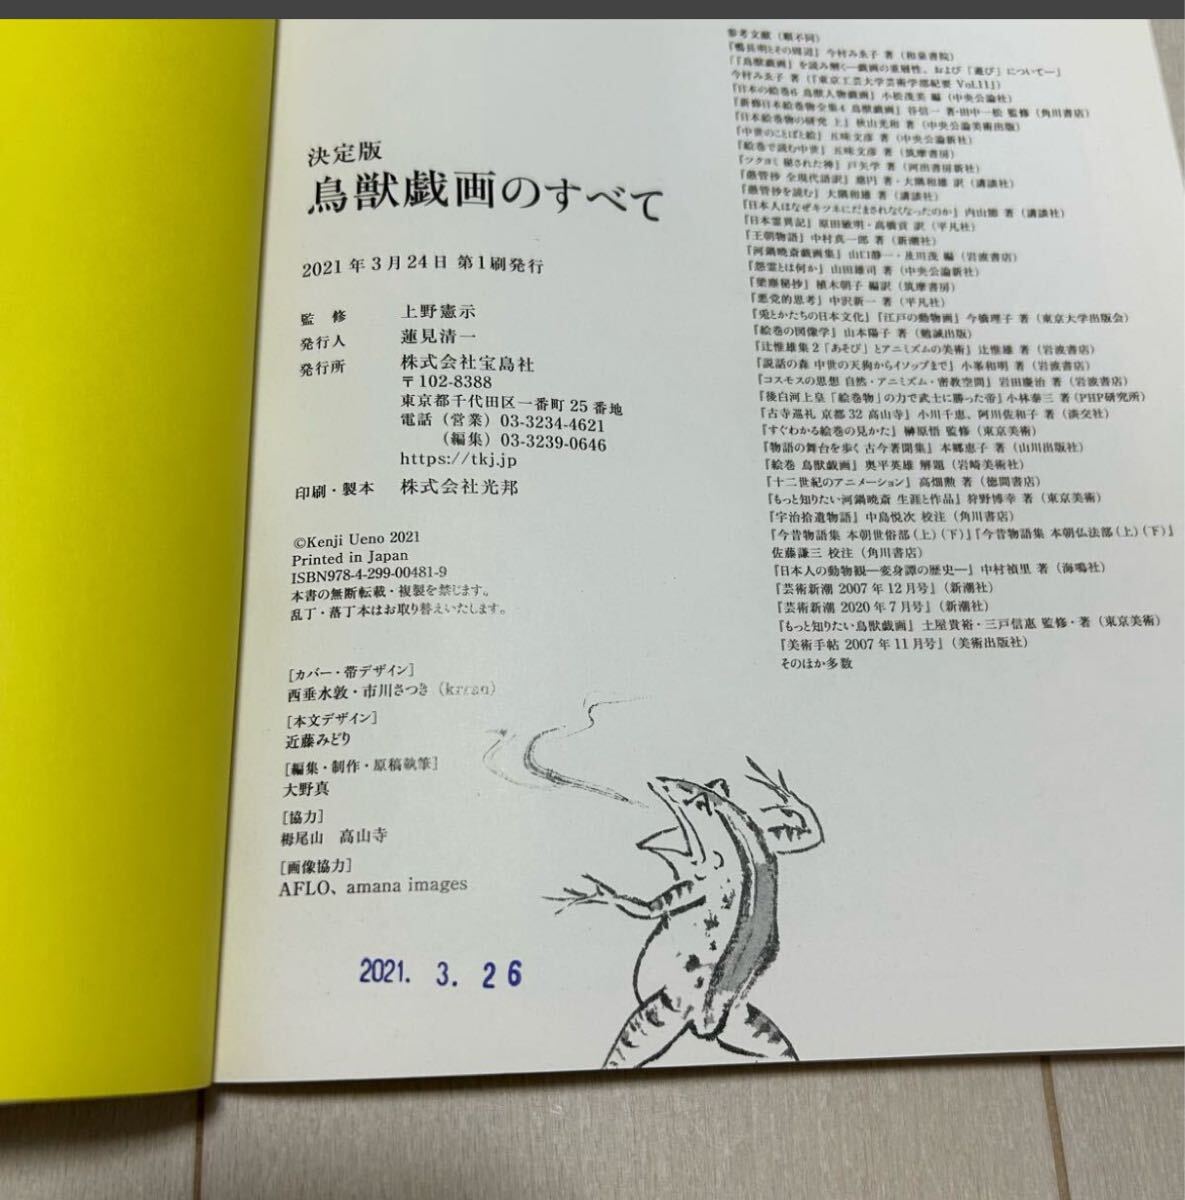 決定版
鳥獣戯画のすべて
2021年3月24日 第1刷発行
監修 上野憲示
発行人 蓮見清一
発行所 株式会社宝島社
〒102-8388
東京都千代田区一番町25番地
電話（営業）03-3234-4621
（編集）03-3239-0646
https://tkj.jp
印刷・製本 株式会社光邦
©Kenji Ueno 2021
Printed in Japan
ISBN978-4-299-00481-9
本書の無断転載・複製を禁じます。
乱丁・落丁本はお取り替えいたします。
［カバー・帯デザイン］
西垂水敦・市川さつき（krran）
［本文デザイン］
近藤みどり
［編集・制作・原稿執筆］
大野真
［協力］
栂尾山 高山寺
［画像協力］
AFLO、amana images
2021. 3. 26
参考文献（順不同）
『鴨長明とその周辺』今村みゑ子 著（和泉書院）
「『鳥獣戯画』を読み解く―戯画の重層性、および「遊び」について―」
今村みゑ子 著（『東京工芸大学芸術学部紀要 Vol.11』）
『日本の絵巻6 鳥獣人物戯画』小松茂美 編（中央公論社）
『新修日本絵巻物全集4 鳥獣戯画』谷信一 著・田中一松 監修（角川書店）
『日本絵巻物の研究 上』秋山光和 著（中央公論美術出版）
『中世のことばと絵』五味文彦 著（中央公論新社）
『絵巻で読む中世』五味文彦 著（筑摩書房）
『ツクヨミ 秘された神』戸矢学 著（河出書房新社）
『愚管抄 全現代語訳』慈円 著・大隅和雄 訳（講談社）
『愚管抄を読む』大隅和雄 著（講談社）
『日本人はなぜキツネにだまされなくなったのか』内山節 著（講談社）
『日本霊異記』原田敏明・高橋貢 訳（平凡社）
『王朝物語』中村真一郎 著（新潮社）
『河鍋暁斎戯画集』山口静一・及川茂 編（岩波書店）
『怨霊とは何か』山田雄司 著（中央公論新社）
『梁塵秘抄』植木朝子 編訳（筑摩書房）
『悪党的思考』中沢新一 著（平凡社）
『兎とかたちの日本文化』『江戸の動物画』今橋理子 著（東京大学出版会）
『絵巻の図像学』山本陽子 著（勉誠出版）
『辻惟雄集2「あそび」とアニミズムの美術』辻惟雄 著（岩波書店）
『説話の森 中世の天狗からイソップまで』小峯和明 著（岩波書店）
『コスモスの思想 自然・アニミズム・密教空間』岩田慶治 著（岩波書店）
『後白河上皇「絵巻物」の力で武士に勝った帝』小林泰三 著（PHP研究所）
『古寺巡礼 京都32 高山寺』小川千恵、阿川佐和子 著（淡交社）
『すぐわかる絵巻の見かた』榊原悟 監修（東京美術）
『物語の舞台を歩く 古今著聞集』本郷恵子 著（山川出版社）
『絵巻 鳥獣戯画』奥平英雄 解題（岩崎美術社）
『十二世紀のアニメーション』高畑勲 著（徳間書店）
『もっと知りたい河鍋暁斎 生涯と作品』狩野博幸 著（東京美術）
『宇治拾遺物語』中島悦次 校注（角川書店）
『今昔物語集 本朝世俗部（上）（下）』『今昔物語集 本朝仏法部（上）（下）』
佐藤謙三 校注（角川書店）
『日本人の動物観―変身譚の歴史―』中村禎里 著（海鳴社）
『芸術新潮 2007年12月号』（新潮社）
『芸術新潮 2020年7月号』（新潮社）
『もっと知りたい鳥獣戯画』土屋貴裕・三戸信惠 監修・著（東京美術）
『美術手帖 2007年11月号』（美術出版社）
そのほか多数